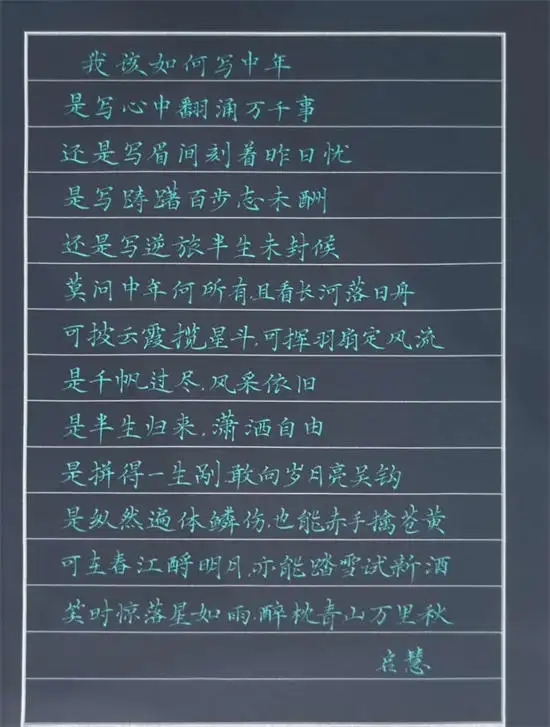 我该如何写中年
是写心中翻涌万千事
还是写眉间刻着昨日忧
是写踌躇百步志未酬
还是写逆旅半生未封候
莫问中年何所有,且看长河落日舟
可披云霞揽星斗,可挥羽扇定风流
是千帆过尽,风采依旧
是半生归来,潇洒自由
是拼得一生剐,敢向岁月亮吴钩
是纵然遍体鳞伤,也能赤手擒苍黄
可在春江酹明月,亦能踏雪试新酒
笑时惊落星如雨,醉枕青山万里秋
启慧